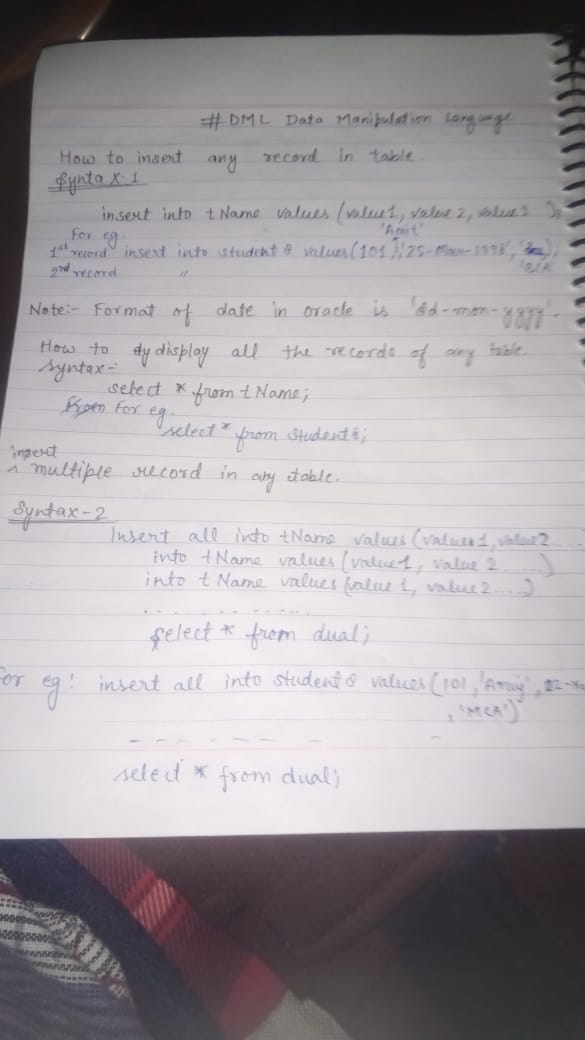 # DML Data Manipulation Language
How to insert any record in table.
Syntax-1
insert into tName values (value1, value 2, value3
For eg.
'Amit'
1st record insert into student8 values (101, '25-Mar-1998',
2nd record "
Note:- Format of date in oracle is 'dd-mon-yyyy'.
How to dy display all the records of any table.
Syntax-
select * from tName;
From For eg.
select * from student8;
insert
^ multiple record in any table.
Syntax-2
Insert all into tName values (value1, value2 ...
into tName values (value1, value 2 ......)
into tName values (value 1, value2....)
.. ... ... ... ..
select * from dual;
For eg! insert all into student8 values (101,
, 'MCA')
- - - - - - - -
select * from dual;